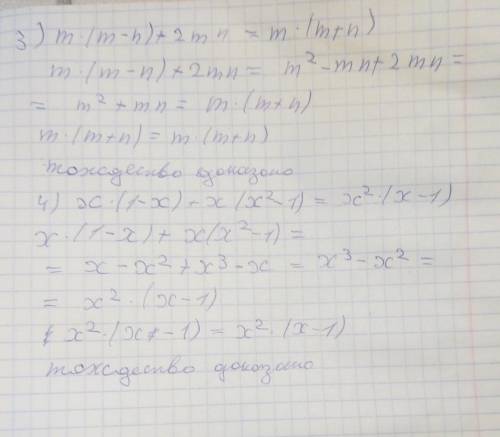 3) m·(m-n)+2mn = m·(m+n)
m·(m-n)+2mn = m²-mn+2mn=
= m²+mn = m·(m+n)
m·(m+n) = m·(m+n)
тождество доказано
4) x·(1-x)+x(x²-1) = x²·(x-1)
x·(1-x)+x(x²-1)=
= x-x²+x³-x = x³-x² =
= x²·(x-1)
x²·(x-1) = x²·(x-1)
тождество доказано